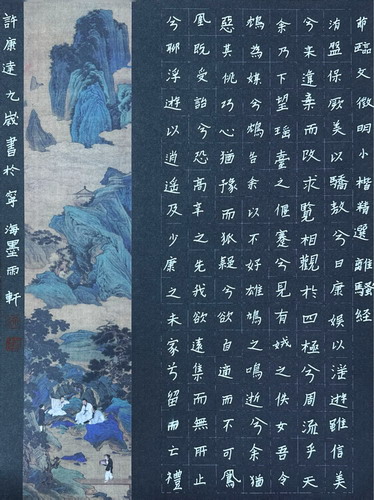 節臨文徵明小楷精選離騷經
洧盤保厥美以驕敖兮日康娛以淫遊雖信美
兮來違棄而改求覽相觀於四極兮周流乎天
余乃下望瑤臺之偃蹇兮見有娀之佚女吾令
鴆為媒兮鴆告余以不好雄鳩之鳴逝兮余猶
惡其佻巧心猶豫而狐疑兮欲自適而不可鳳
凰既受詒兮恐高辛之先我欲遠集而無所止
兮聊浮遊以逍遙及少康之未家兮留而亡禮
許康達九歲書於寧海墨雨軒